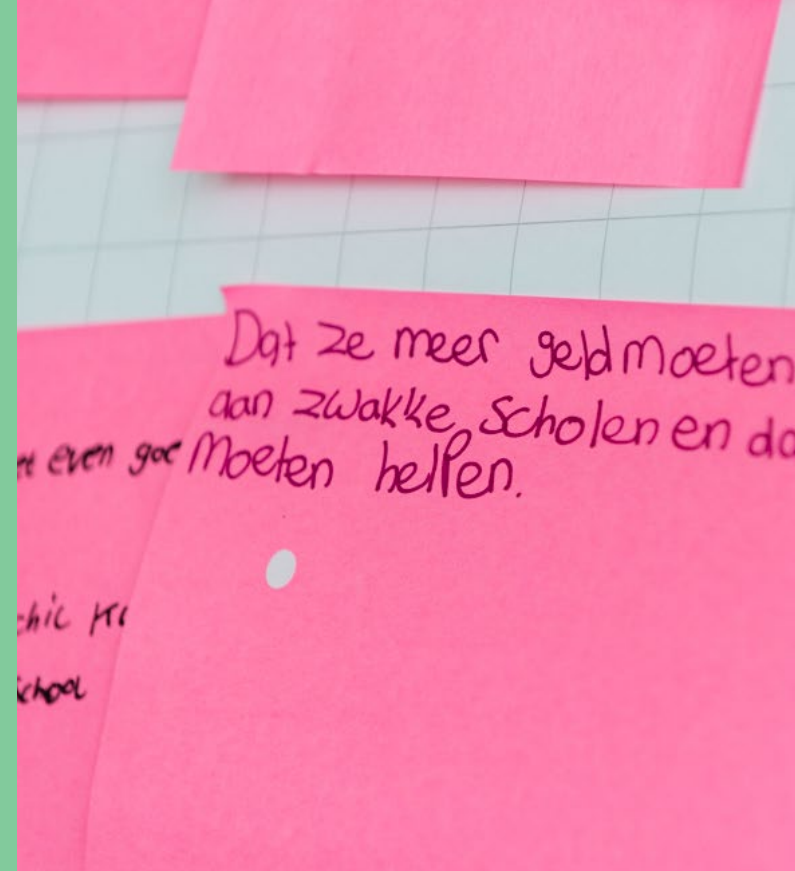 Dat ze meer geld moeten
aan zwakke scholen en
moeten helpen.
even
school